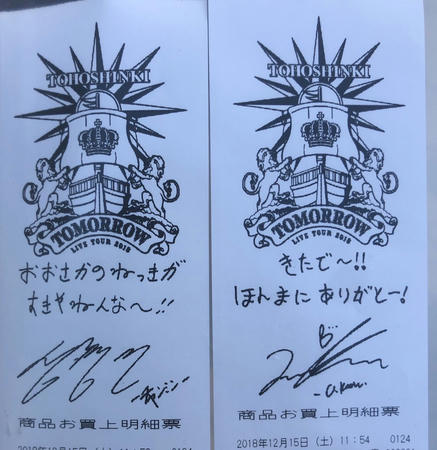 TOHOSHINKI
TOMORROW
LIVE TOUR 2018
おおさかのねっきが
すきやねんな〜!!
商品お買上明細票
TOHOSHINKI
TOMORROW
LIVE TOUR 2018
きたで〜!!
ほんまにありがとー!
商品お買上明細票
2018年12月15日(土) 11:54 0124